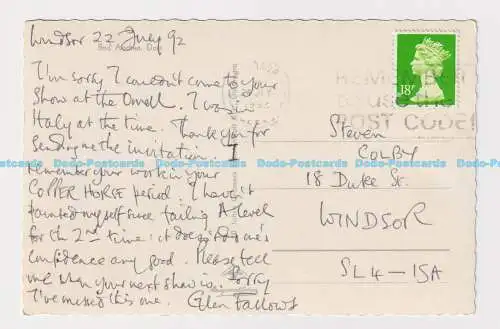 Windsor 22 July 92
I'm sorry I couldn't come to your
Show at the Omell. I was in
Italy at the time. Thank you for
Sending me the invitation. I
remember your work in your
COPPER HORSE period. I haven't
painted myself since failing A level
for the 2nd time: it does do one's
confidence any good. Please tell
me when your next show is. Sorry
I've missed this one. Glen Fallows
18P
REMEMBER
USE THE
POST CODE
Steven
COLBY
18 Duke St.
WINDSOR
SL4-1SA
da-Postcards iDa-Postcards iDa-Postcards iDa-Postcards iDa-Postcards iDa-Postcards